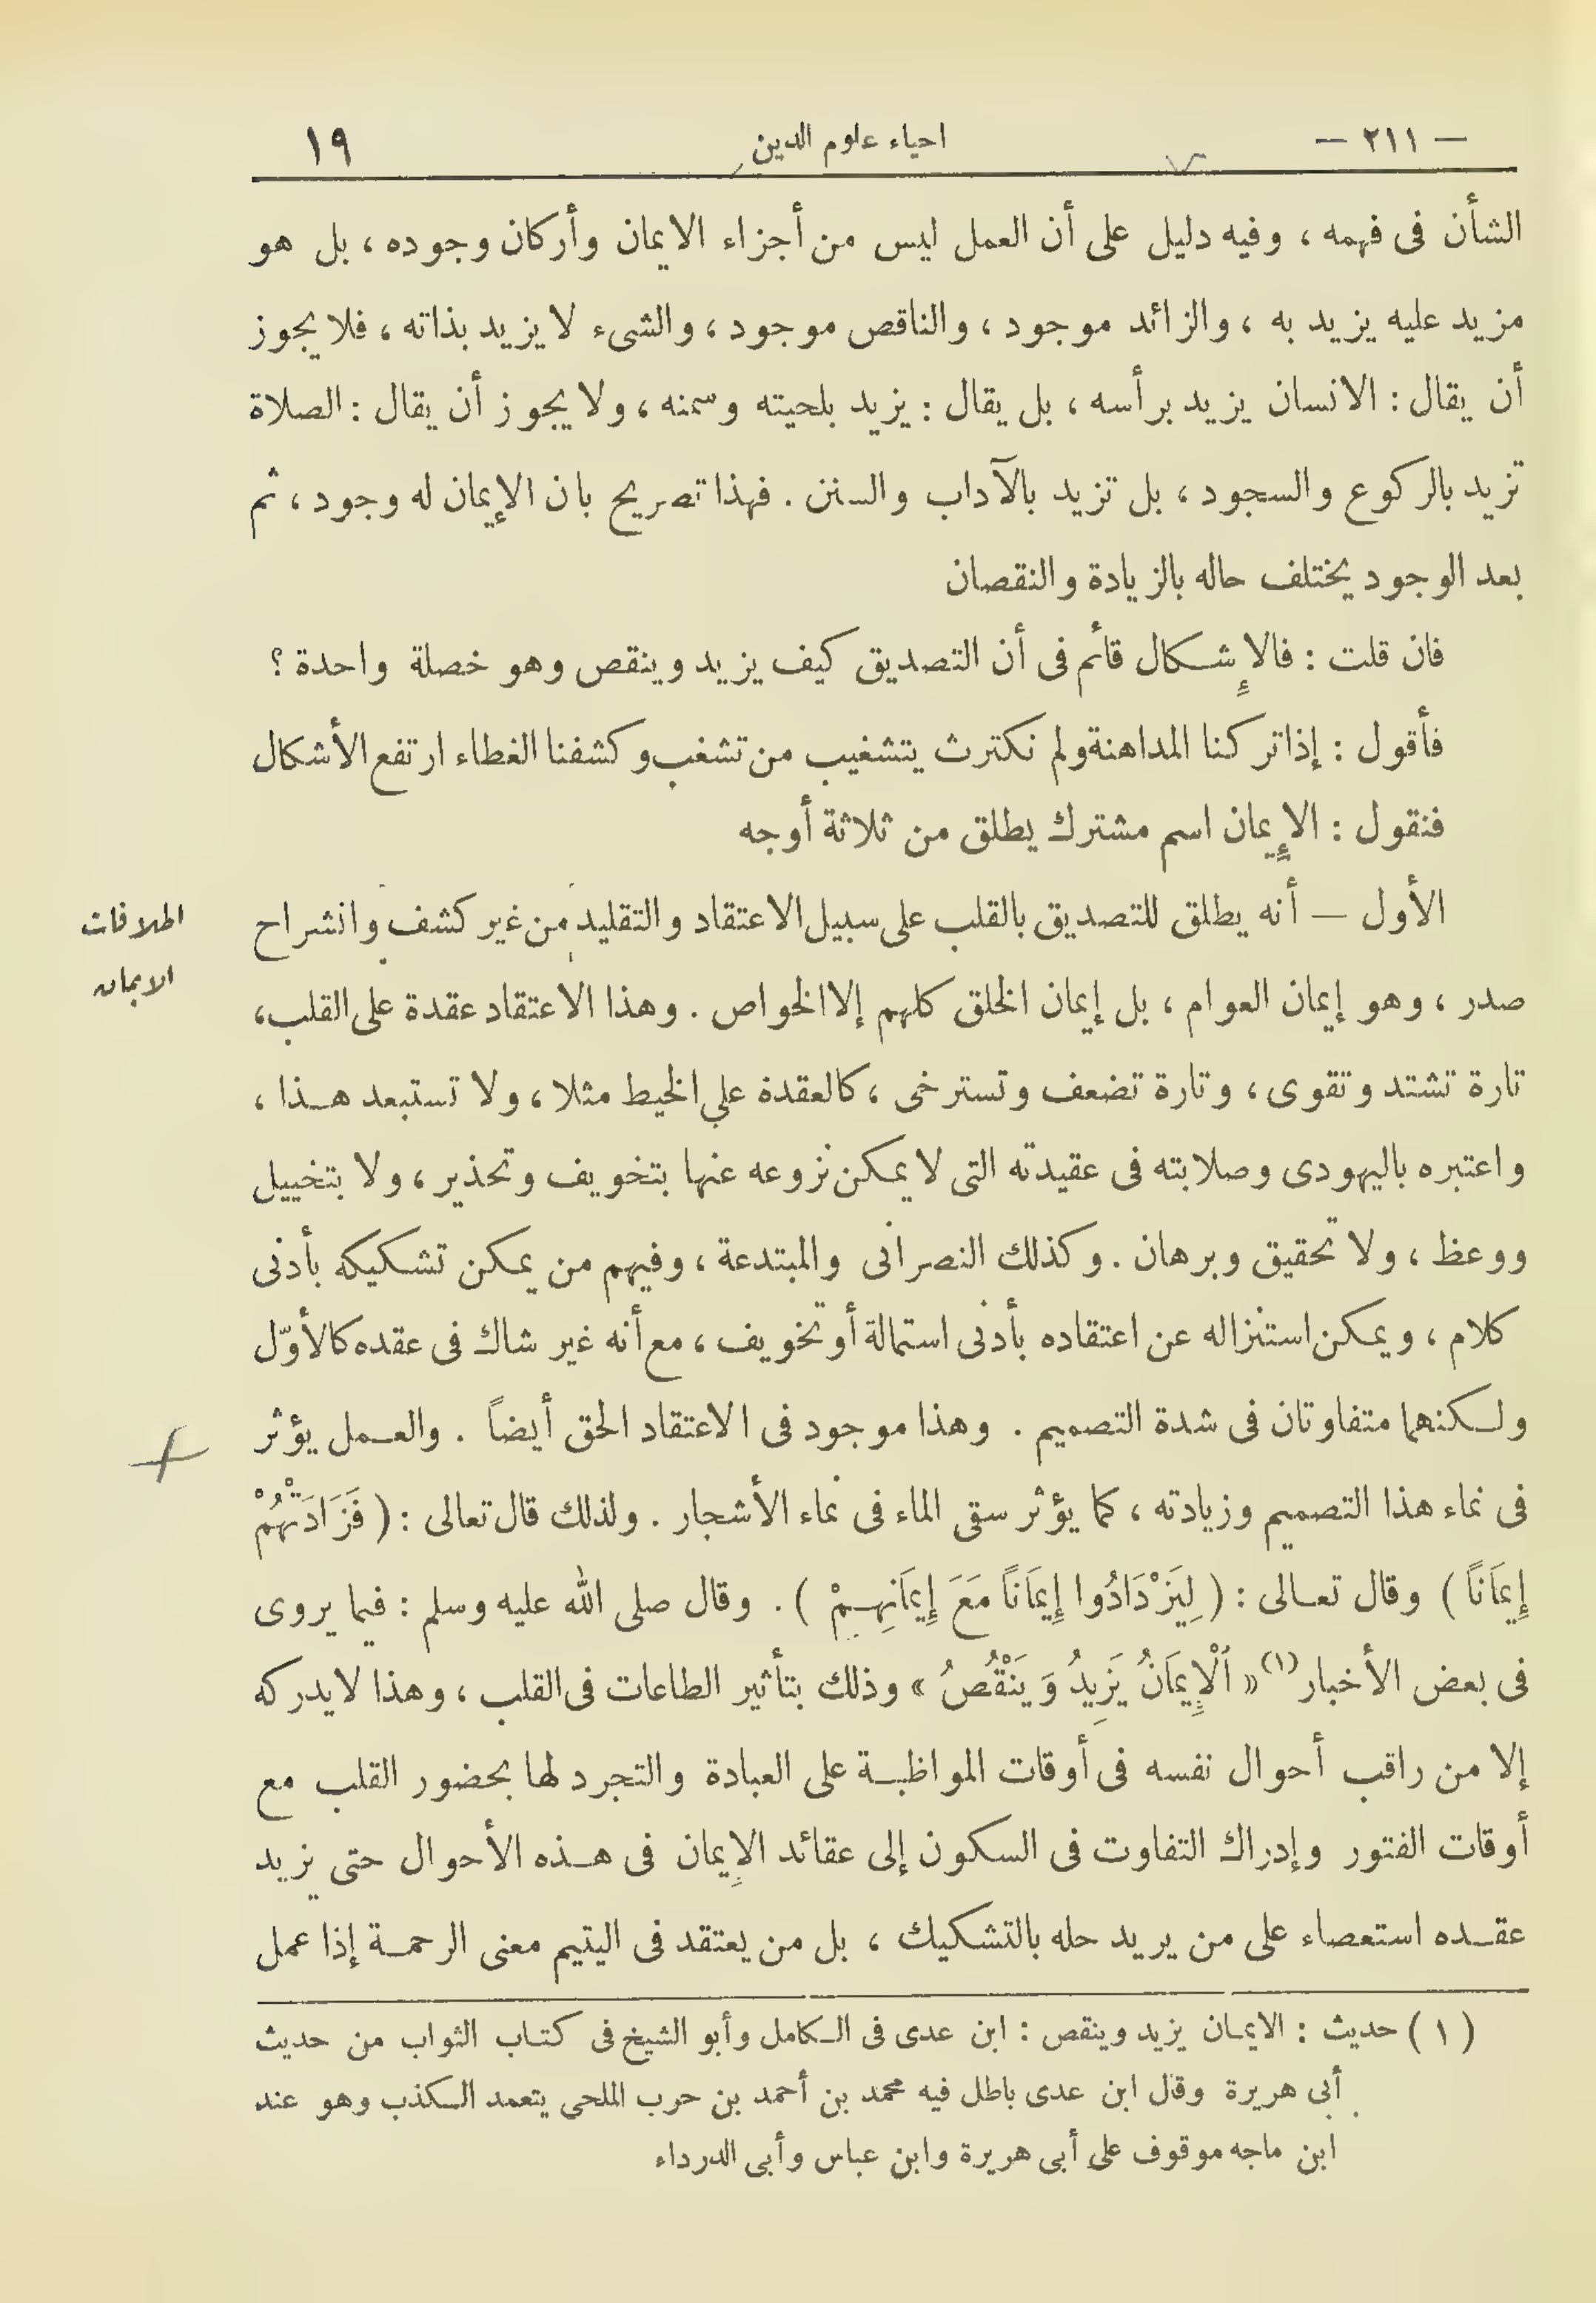 — ٢١١ — احياء علوم الدين ١٩
الشأن فى فهمه ، وفيه دليل على أن العمل ليس من أجزاء الايمان وأركان وجوده ، بل هو
مزيد عليه يزيد به ، والزائد موجود ، والناقص موجود ، والشىء لا يزيد بذاته ، فلا يجوز
أن يقال : الانسان يزيد برأسه ، بل يقال : يزيد بلحيته وسمنه ، ولا يجوز أن يقال : الصلاة
تزيد بالركوع والسجود ، بل تزيد بالآداب والسنن . فهذا تصريح بان الإيمان له وجود ، ثم
بعد الوجود يختلف حاله بالزيادة والنقصان
فان قلت : فالإشكال قائم فى أن التصديق كيف يزيد وينقص وهو خصلة واحدة ؟
فأقول : إذا تركنا المداهنة ولم نكترث يتشغيب من تشغب وكشفنا الغطاء ارتفع الأشكال
فنقول : الإيمان اسم مشترك يطلق من ثلاثة أوجه
الأول — أنه يطلق للتصديق بالقلب على سبيل الاعتقاد والتقليد من غير كشف وانشراح
اطلاقات
الايمان
صدر ، وهو إيمان العوام ، بل إيمان الخلق كلهم إلا الخواص . وهذا الاعتقاد عقدة على القلب،
تارة تشتد وتقوى ، وتارة تضعف وتسترخى ، كالعقدة على الخيط مثلا ، ولا تستبعد هذا ،
واعتبره باليهودى وصلابته فى عقيدته التى لا يمكن نزوعه عنها بتخويف وتحذير ، ولا بتخييل
ووعظ ، ولا تحقيق وبرهان . وكذلك النصرانى والمبتدعة ، وفيهم من يمكن تشكيكه بأدنى
كلام ، ويمكن استنزاله عن اعتقاده بأدنى استمالة أو تخويف ، مع أنه غير شاك فى عقده كالأوّل
ولكنهما متفاوتان فى شدة التصميم . وهذا موجود فى الاعتقاد الحق أيضاً . والعمل يؤثر
فى نماء هذا التصميم وزيادته ، كما يؤثر سقى الماء فى نماء الأشجار . ولذلك قال تعالى : ( فَزَادَتْهُمْ
إِيمَانًا ) وقال تعالى : ( لِيَزْدَادُوا إِيمَانًا مَعَ إِيمَانِهِمْ ) . وقال صلى الله عليه وسلم : فيما يروى
فى بعض الأخبار (١) « اَلْإِيمَانُ يَزِيدُ وَيَنْقُصُ » وذلك بتأثير الطاعات فى القلب ، وهذا لا يدركه
إلا من راقب أحوال نفسه فى أوقات المواظبة على العبادة والتجرد لها بحضور القلب مع
أوقات الفتور وإدراك التفاوت فى السكون إلى عقائد الإيمان فى هذه الأحوال حتى يزيد
عقده استعصاء على من يريد حله بالتشكيك ، بل من يعتقد فى اليتيم معنى الرحمة إذا عمل
( ١ ) حديث : الايمان يزيد وينقص : ابن عدى فى الكامل وأبو الشيخ فى كتاب الثواب من حديث
أبى هريرة وقال ابن عدى باطل فيه محمد بن أحمد بن حرب الملحى يتعمد الكذب وهو عند
ابن ماجه موقوف على أبى هريرة وابن عباس وأبى الدرداء